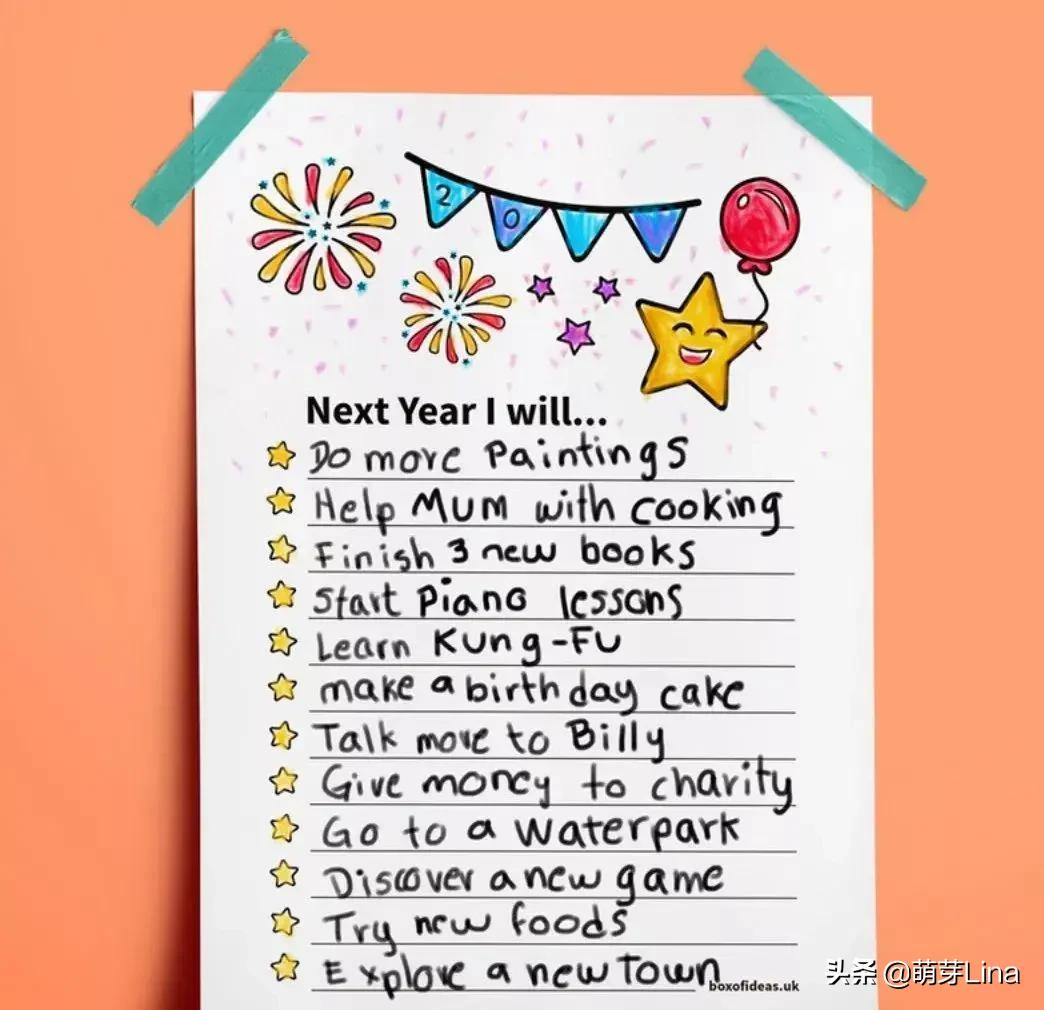 2 0
Next Year I will...
Do more Paintings
Help Mum with cooking
Finish 3 new books
Start Piano lessons
Learn Kung-Fu
make a birthday cake
Talk more to Billy
Give money to charity
Go to a waterpark
Discover a new game
Try new foods
Explore a new Town
boxofideas.uk
头条 @萌芽Lina